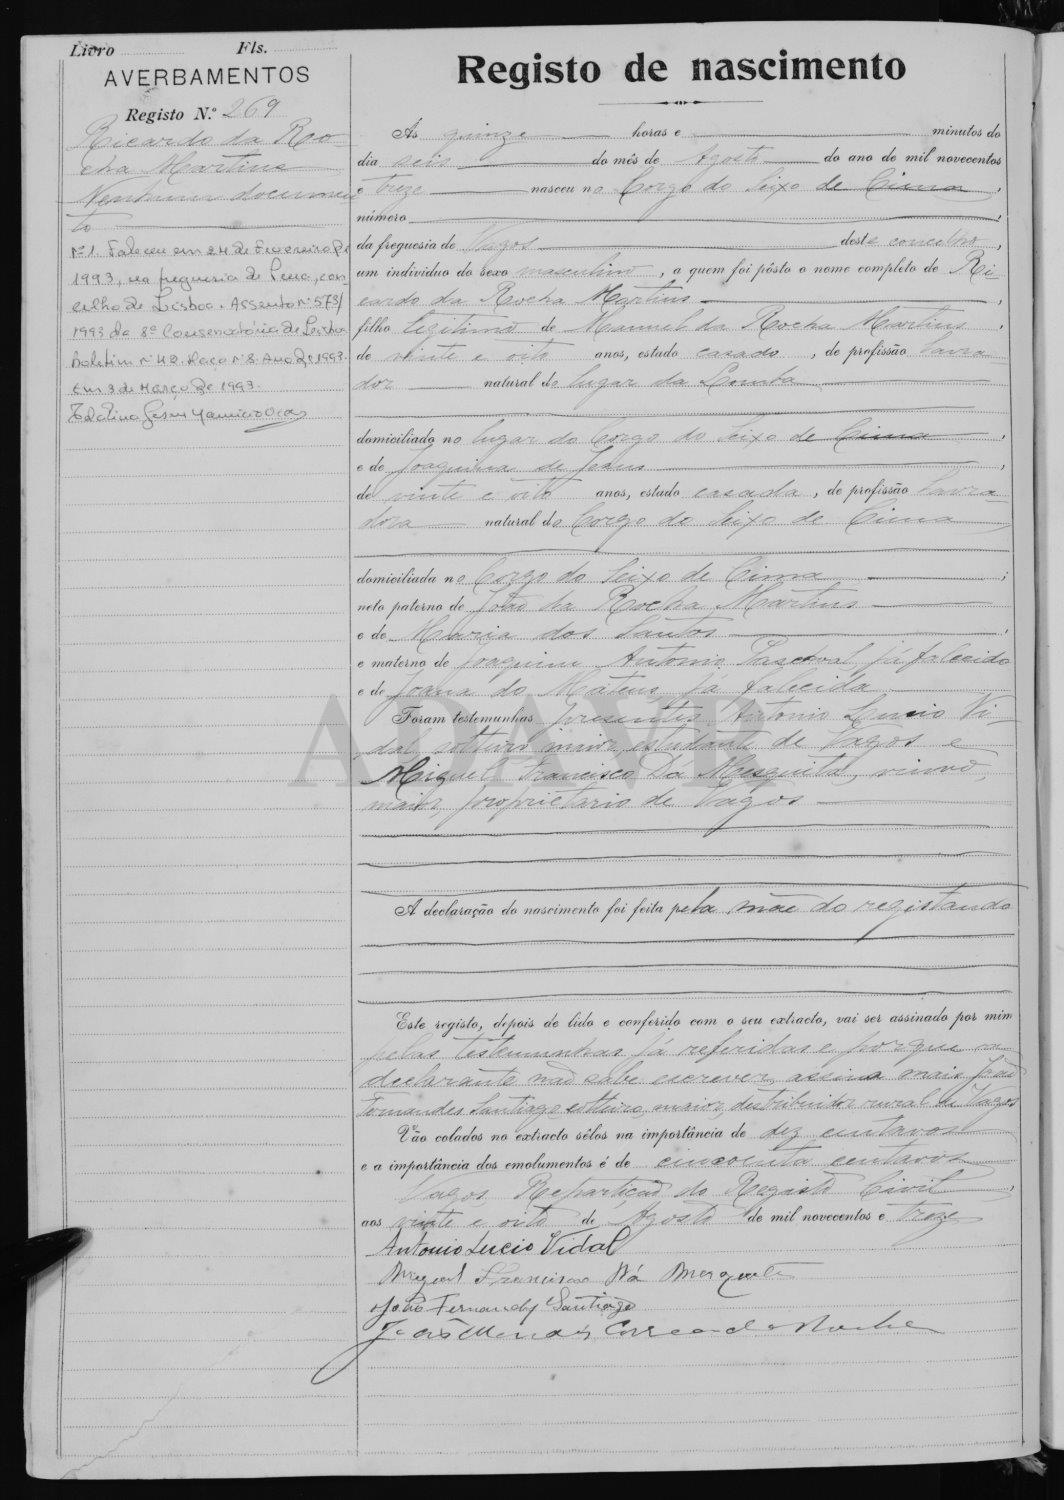 Livro Fls.
AVERBAMENTOS
Registo N.º 269
Ricardo da Ro-
cha Martins
Nenhum documen
to
Nº 1. Faleceu em 24 de Fevereiro de
1993, na freguesia de Pena, con-
celho de Lisboa. Assento nº 573/
1993 da 8ª Conservatória de Lisboa
Boletim nº 42. Maço nº 8. Ano de 1993.
Em 3 de Março de 1993.
Registo de nascimento
Ás quinze horas e minutos do
dia seis do mês de Agosto do ano de mil novecentos
e treze nasceu no Corgo do Seixo de Cima,
número
da freguesia de Vagos deste concelho,
um individuo do sexo masculino, a quem foi pôsto o nome completo de Ri-
cardo da Rocha Martins
filho legitimo de Manuel da Rocha Martins,
de vinte e oito anos, estado casado, de profissão lavra-
dor natural do lugar da Lomba
domiciliado no lugar do Corgo do Seixo de Cima,
e de Joaquina de Jesus,
de vinte e oito anos, estado casada, de profissão lavra-
dora natural do Corgo do Seixo de Cima
domiciliada no Corgo do Seixo de Cima;
neto paterno de João da Rocha Martins
e de Maria dos Santos,
e materno de Joaquim Antonio Pascoal, já falecido
e de Joana do Mateus, já falecida.
Foram testemunhas presentes Antonio Lucio Vi-
dal, solteiro, maior, estudante de Vagos e
Miguel Francisco Dá Mesquita, viuvo,
maior, proprietario de Vagos
A declaração do nascimento foi feita pela mãe do registando
Este registo, depois de lido e conferido com o seu extracto, vai ser assinado por mim
pelas testemunhas já referidas e porque a
declarante não sabe escrever, assina mais João
Fernandes Santiago, solteiro, maior, destribuidor rural de Vagos
Vão colados no extracto sêlos na importância de dez centavos
e a importância dos emolumentos é de cincoenta centavos
Vagos, Repartição do Registo Civil,
aos vinte e oito de Agosto de mil novecentos e treze
Antonio Lucio Vidal
Miguel Francisco Dá Mesquita
João Fernandes Santiago
João Mendes Correia da Rocha
ADAVR